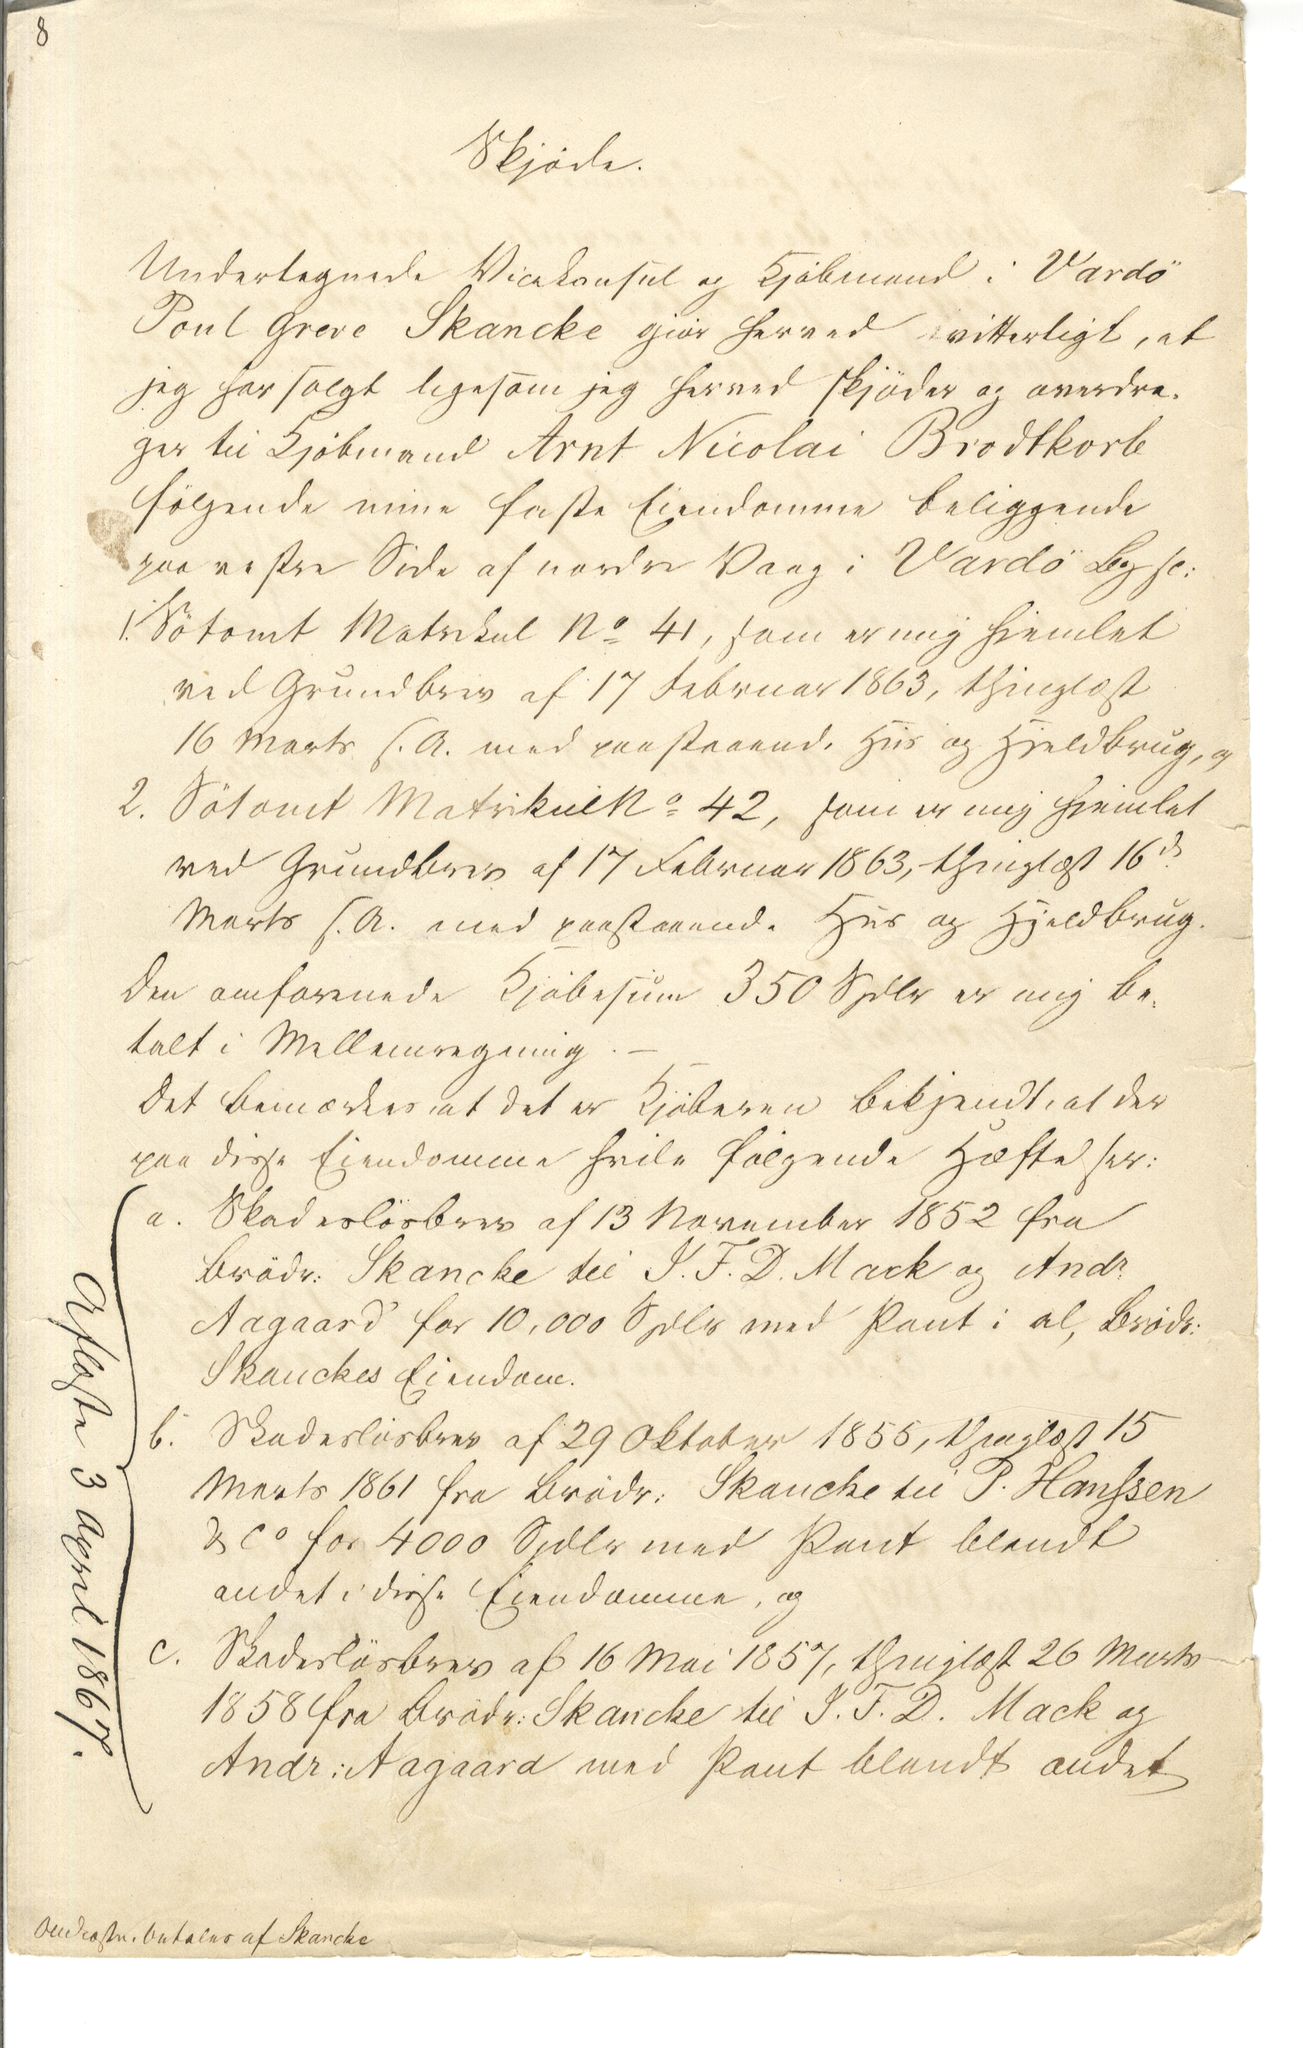 8
Skjöde.
Undertegnede Vicekonsul og Kjöbmand i Vardö
Poul Greve Skancke gjör herved vitterligt, at
jeg har solgt ligesom jeg herved skjöder og overdra-
ger til Kjöbmand Arnt Nicolai Brodtkorb
fölgende mine faste Eiendomme beliggende
paa vestre Side af nordre Vaag i Vardö By sc:
1. Sötomt Matrikul No 41, som er mig hjemlet
ved Grundbrev af 17 Februar 1863, thinglæst
16 Marts s. A. med paastaaende Hus og Hjeldbrug, og
2. Sötomt Matrikul No 42, som er mig hjemlet
ved Grundbrev af 17 Februar 1863, thinglæst 16d
Marts s. A. med paastaaende Hus og Hjeldbrug.
Den omforenede Kjöbesum 350 Spdlr er mig be-
talt i Mellemregning. —
Det bemærkes at det er Kjöberen bekjendt, at der
paa disse Eiendomme hvile fölgende Hæftelser:
a. Skadeslösbrev af 13 November 1852 fra
Brödr: Skancke til J. F. D. Mack og Andr.
Aagaard for 10,000 Spdlr med Pant i al, Brödr:
Skanckes Eiendom.
b. Skadeslösbrev af 29 Oktober 1855, thinglæst 15
Marts 1861 fra Brödr: Skancke til P. Hanssen
& Co for 4000 Spdlr med Pant blandt
andet i disse Eiendomme, og
c. Skadeslösbrev af 16 Mai 1857, thinglæst 26 Marts
1858 fra Brödr: Skancke til J. F. D. Mack og
Andr: Aagaard med Pant blandt andet
Aflæste 3 April 1867.
betales af Skancke